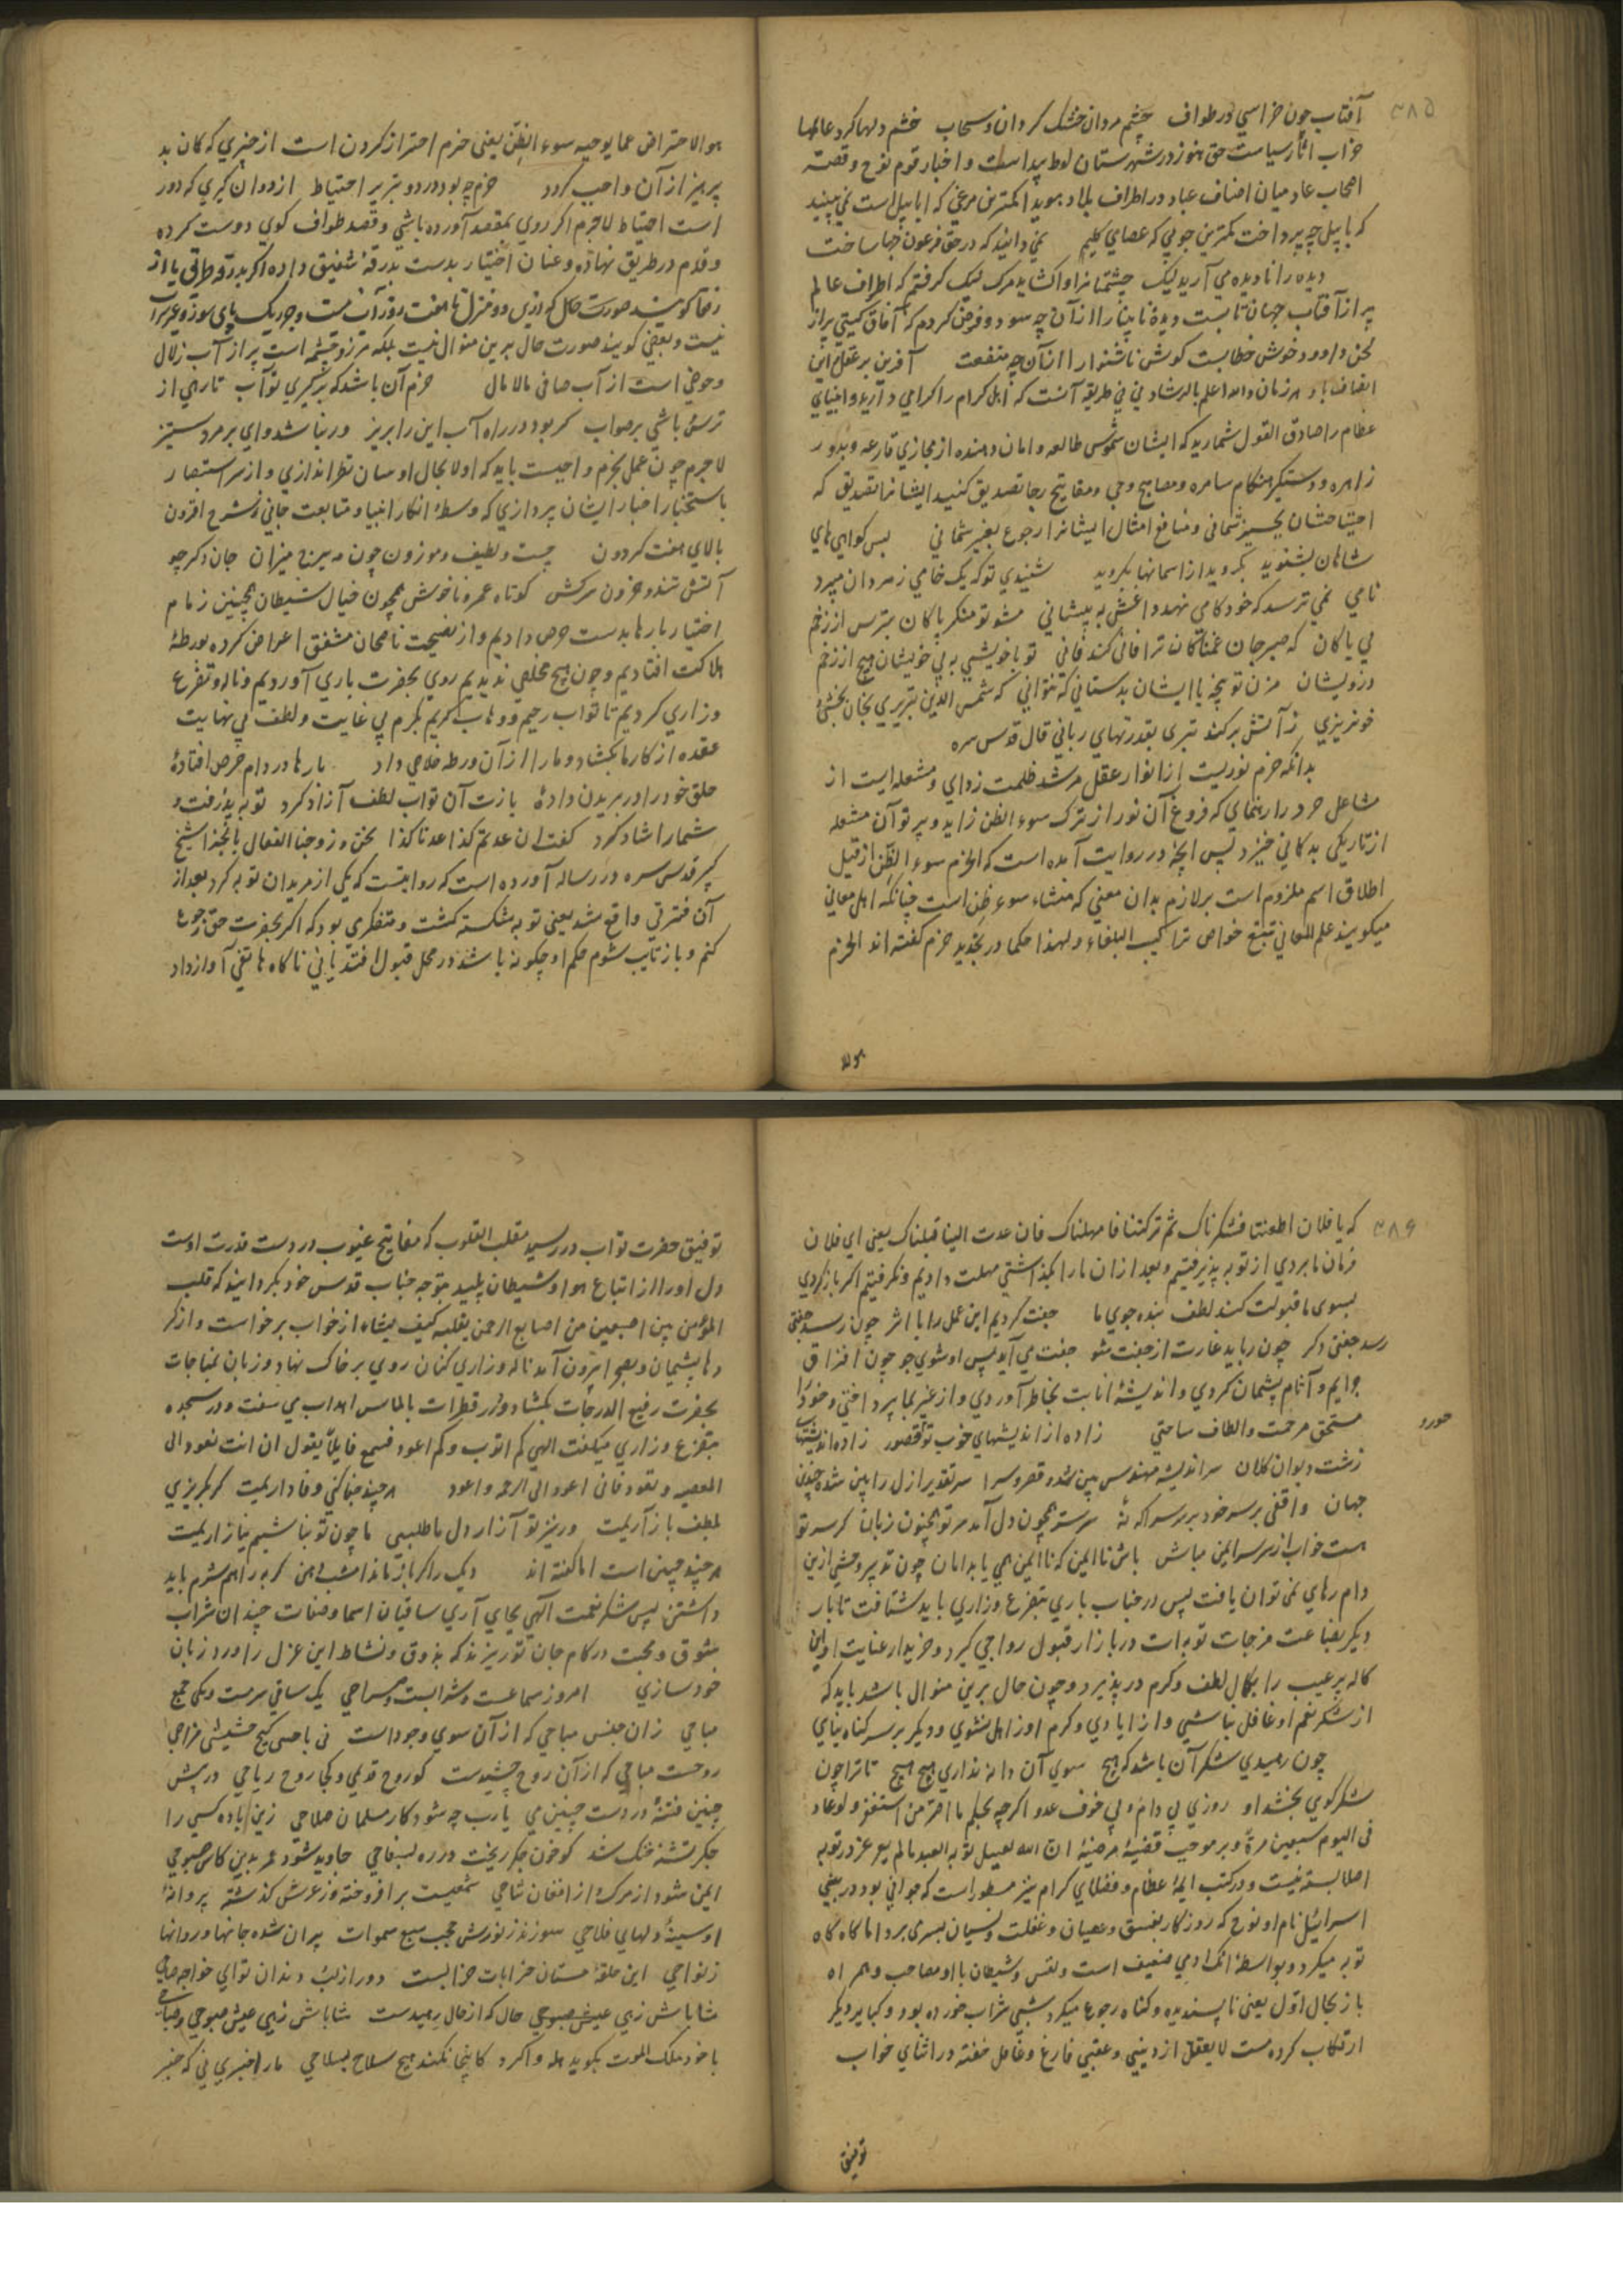 ۳۸۵
آفتاب چون خراسی در طواف خشم مردان خشک گرداند سحاب خشم دلها کرد عالمها
خراب آثار سیاست حق هنوز در شهرستان لوط پیداست و اخبار قوم نوح و قصه
اصحاب عاد میان اصناف عباد در اطراف بلاد هویدا کمترین مرغی که ابابیل است نمی بینید
که با پیل چه پرداخت کمترین چوبی که عصای کلیم نمی دانید که در حق فرعون چها ساخت
دیده را نادیده می آرید لیک چشمتانرا واکشاید مرک نیک گرفتم که اطراف عالم
پر از آفتاب جهان تابست دیده نابینا را از آن چه سود و فرض کردم که آفاق گیتی پر از
لحن داود و خوش خطابست گوش ناشنوا را از آن چه منفعت آفرین بر عقل این
انصاف باد هر زمان والله اعلم بالرشاد نی نی طریقه آنست که اهل کرام را گرامی دارید و انبیای
عظام را صادق القول شمارید که ایشان شموس طالعه و امان دهنده از مجازی قارعه و بدور
زاهره و دستگیر هنگام سامره و مصابیح وحی و مفاتیح رجا تصدیق کنید ایشانرا تصدیق که
احتیاجشان بچیز شمانی و منافع امثال ایشانرا رجوع بغیر شمانی بس گواهی های
شاهان بشنوید بگروید از اسمانها بگروید شنیدی تو که یک خامی ز مردان میبرد
نامی نمی ترسد که خودکامی نهد داغش به پیشانی مشو تو منکر پاکان بترس از زخم
بی باکان که صبر جان غمناکان ترا فانی کند فانی تو با خویشی به بی خویشان مپیچ از زخم
درویشان مزن تو پنجه با ایشان بدستانی که نتوانی که شمس الدین تبریزی بجان بخشی
خونریزی ز آتش برکند تیزی بقدرتهای ربانی قال قدس سره
بدانکه حزم نوریست از انوار عقل مرشد ظلمت زدای و مشعله است از
مشاعل خرد راهنمای که فروغ آن نور از ترک سوء الظن زاید و پرتو آن مشعله
از تاریکی بدگمانی خیزد پس آنچه در روایت آمده است که الحزم سوء الظن از قبیل
اطلاق اسم ملزوم است بر لازم بدان معنی که منشاء سوء ظن است چنانکه اهل معانی
میگویند علم المعانی تتبع خواص تراکیب البلغاء و لهذا حکما در تجدید حزم گفته اند الحزم
هو الا
هو الاحتراض عما یوجبه سوء الظن یعنی حزم احتراز کردن است از چیزی که گمان بد
پرهیز از آن واجب گردد حزم چه بود در دو تدبیر احتیاط از دو آن گیری که دور
است احتیاط لاجرم اگر روی بمقصد آورده باشی و قصد طواف کوی دوست کرده
و قدم در طریق نهاده و عنان اختیار بدست بدرقه شفیق داده اگر بدرقه طراقی یا از
رفقا گویند صورت حال که ازین دو منزل تا هفت روز آب نیست و جز ریک پای سوز و غیر سراب
نیست و بعضی گویند صورت حال برین منوال نیست بلکه هر ز و چشمه است پر از آب زلال
و حوضی است از آب صافی مالامال حزم آن باشد که برگیری تو آب تا رهی از
ترس باشی بر صواب گر بود در راه آب این را بریز ور نباشد وای بر مرد ستیز
لاجرم چون عمل بحزم واجبست باید که اولا بحال اوسان نظر اندازی و از سر استبصار
باستخبار اخبار ایشان پردازی که وسطهٔ انکار انبیا و متابعت جانی و شرح افزون
بالای هفت گردون چست و لطیف و موزون چون مه ببرج میزان جان دگر چو
آتش تند و حزون سرکش کوتاه عمر و ناخوش همچون خیال شیطان همچنین زمام
اختیار بارها بدست حرص دادیم و از نصیحت ناصحان مشفق اعراض کرده بورطهٔ
هلاکت افتادیم و چون هیچ مخلصی ندیدیم روی بحضرت باری آوردیم و ناله و تضرع
و زاری کردیم تا تواب رحیم و وهاب کریم بکرم بی غایت و لطف بی نهایت
عقده از کار ما بکشاد و ما را از آن ورطه خلاصی داد بارها در دام حرص افتادهٔ
حلق خود را در بریدن دادهٔ بازت آن تواب لطف آزاد کرد توبه پذرفت و
شما را شاد کرد گفت ان عدتم کذا عدنا کذا نحن زوجنا الفعال بالجزا شیخ
کبیر قدس سره در رساله آورده است که روایتست که یکی از مریدان توبه کرد بعد از
آن فترتی واقع شد یعنی توبه شکسته گشت و متفکر می بود که اگر بحضرت حق رجوع
کنم و باز تایب شوم حکم او چگونه باشد در محل قبول افتد یا نی ناگاه هاتفی آواز داد
۳۸۶
که یا فلان اطعتنا فشکرناک ثم ترکتنا فامهلناک فان عدت الینا قبلناک یعنی ای فلان
فرمان ما بردی از تو به پذیرفتیم و بعد از آن ما را بگذاشتی مهلت دادیم و نگرفتیم اگر باز گردی
بسوی ما قبولت کند لطف بنده جوی ما جفت کردیم این عمل را با اثر چون رسد جفتی
رسد جفتی دگر چون رباید غارت از جفت شو جفت می آید پس او شوی جو چون از تراق
جرایم و آثام پشیمان گردی و اندیشهٔ انابت بخاطر آوردی و از غیر بما پرداختی و خود را
مستحق مرحمت و الطاف ساختی زاده از اندیشهای خوب تو قصور زاده اندیشهای
زشت دیوان کلان سر اندیشه مهندس بین شده قصر و سرا سر تقدیر ازل را بین شده چندین
جهان واقفی بر سر خود بر سر سر آگه نهٔ سر سر همچون دل آمد سر تو همچون زبان گر سر تو
هست خواب از سر سر ایمن مباش باش ناایمن که ناایمن همی یابد امان چون تدبیر و حشی ازین
دام رهای نمی توان یافت پس در جناب باری بتضرع و زاری باید شتافت تا بار
دیگر بضاعت مزجات توبه ات در بازار قبول رواجی گیرد و خریدار عنایت او این
کاله پر عیب را بکمال لطف و کرم در پذیرد و چون حال برین منوال باشد باید که
از شکر نعم او غافل نباشی و از ایادی و کرم او ز اهل نشوی و دیگر بر سر گناه نیای
چون رهیدی شکر آن باشد که هیچ سوی آن دانه نداری پیچ پیچ تا ترا چون
شکر گوی بخشد او روزی بی دام و بی خوف عدو اگرچه بحکم ما اصر من استغفر و لو عاد
فی الیوم سبعین مرة و بر موجب قضیهٔ مرضیه ان الله لیقبل توبة العبد ما لم یغرغر در توبه
اصلا بسته نیست و در کتب ایمهٔ عظام و فضلای کرام نیز مسطور است که جوانی بود در بنی
اسرائیل نام او نوح که روزگار بفسق و عصیان و غفلت و نسیان بسر می برد اما گاه گاه
توبه میکرد و بواسطهٔ انک ادمی ضعیف است و نفس و شیطان با او مصاحب و همراه
باز بحال اول یعنی ناپسندیده و گناه رجوع میکرد شبی شراب خورده بود و کبایر دیگر
ارتکاب کرده مست لا یعقل از دینی و عقبی فارغ و غافل خفته در اثنای خواب
توفیق
توفیق حضرت تواب در رسید مقلب القلوب که مفاتیح غیوب در دست قدرت اوست
دل او را از اتباع هوا و شیطان پلید متوجه جناب قدس خود بگردانید که قلب
المؤمن بین اصبعین من اصابع الرحمن یقلبه کیف یشاء از خواب برخواست و از کر
دها پشیمان و بصحرا بیرون آمد ناله و زاری کنان روی بر خاک نهاد و زبان بمناجات
بحضرت رفیع الدرجات بکشاد و در قطرات بالماس اهداب می سفت و در سجده
بتضرع و زاری میگفت الهی کم اتوب و کم اعود فسمع قایلا یقول ان انت تعود الی
المعصیه و تعود فانی اعود الی الرحمه و اعود هر چند جفا کنی وفا داریمت گر بگریزی
بلطف باز آریمت ور نیز تو آزار دل ما طلبی ما چون تو نباشیم نیازاریمت
هر چند چنین است اما گفته اند دیک را گر باز ماند امشب دهن گربه را هم شرم باید
داشتن پس شکر نعمت الهی بجای آری ساقیان اسما و صفات چندان شراب
شوق و محبت در کام جان تو ریزند که بذوق و نشاط این غزل را ورد زبان
خود سازی امروز سماعست و شرابست و صراحی یک ساقی سرمست و یکی جمع
مباحی زان جنس مباحی که از آن سوی وجود است نی باحتی گیج حشیشی مزاجی
روحست مباحی که از آن روح چشیدست کو روح قدیمی و کجا روح ریاحی در پیش
چنین فتنهٔ و در دست چنین می یارب چه شود کار مسلمان صلاحی زین باده کسی را
جگر تشنه خنک شد کو خون جگر ریخت درین ره بسفاحی جاوید شود عمر بدین کاس صبوحی
ایمن شود از مرک و از افغان نیاحی شمعیست برافروخته وز عرش گذشته پروانهٔ
او سینهٔ دلهای فلاحی سوزند ز نورش حجب سبع سموات پران شده جانها و روانها
ز نواحی این حلقهٔ مستان خرابات خرابست دور از لب و دندان تو ای خواجه صاحی
شاباش زهی عیش صبوحی حال که از حال رهیدست شاباش زهی عیش صبوحی و صباحی
با خود ملک الموت بگوید هله واگرد کاینجا نکند هیچ سلاح تو سلاحی ما را خبری نی که خبر